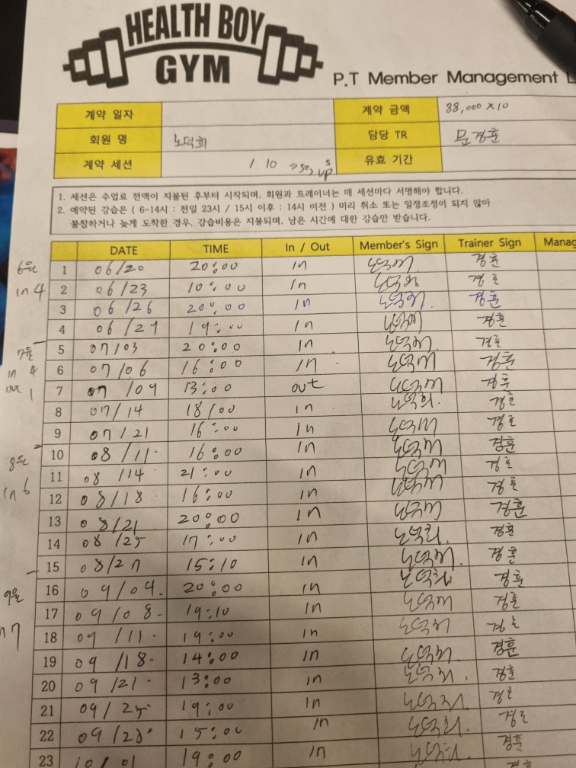 HEALTH BOY
GYM
P.T Member Management
계약 일자 계약 금액 88,000 x 10
회원 명 노덕희 담당 TR 문경훈
계약 세션 / 10 유효 기간
1. 세션은 수업료 전액이 지불된 후부터 시작되며, 회원과 트레이너는 매 세션마다 서명해야 합니다.
2. 예약된 강습은 ( 6-14시 : 전일 23시 / 15시 이후 : 14시 이전 ) 미리 취소 또는 일정조정이 되지 않아
불참하거나 늦게 도착한 경우, 강습비용은 지불되며, 남은 시간에 대한 강습만 받습니다.
DATE TIME In / Out Member's Sign Trainer Sign Manag
6월 1 06/20 20:00 in 노덕희 경훈
in 4 2 06/23 10:00 in 노덕희 경훈
3 06/26 20:00 in 노덕희 경훈
4 06/29 19:00 in 노덕희 경훈
7월 5 07/03 20:00 in 노덕희 경훈
in 4 6 07/06 16:00 in 노덕희 경훈
out 1 7 07/09 13:00 out 노덕희 경훈
8 07/14 18/00 in 노덕희 경훈
9 07/21 16:00 in 노덕희 경훈
8월 10 08/11 16:00 in 노덕희 경훈
in 6 11 08/14 21:00 in 노덕희 경훈
12 08/18 16:00 in 노덕희 경훈
13 08/21 20:00 in 노덕희 경훈
14 08/25 17:00 in 노덕희 경훈
15 08/27 15:10 in 노덕희 경훈
9월 16 09/04 20:00 in 노덕희 경훈
in 7 17 09/08 19:10 in 노덕희 경훈
18 09/11 19:00 in 노덕희 경훈
19 09/18 14:00 in 노덕희 경훈
20 09/21 13:00 in 노덕희 경훈
21 09/25 19:00 in 노덕희 경훈
22 09/28 15:00 in 노덕희 경훈
23 10/01 19:00 in 노덕희 경훈